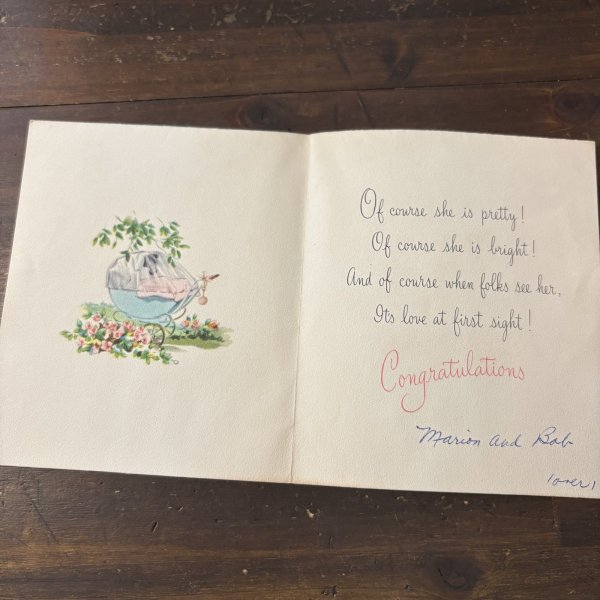 Of course she is pretty!
Of course she is bright!
And of course when folks see her,
Its love at first sight!
Congratulations
Marion and Bob
(over)